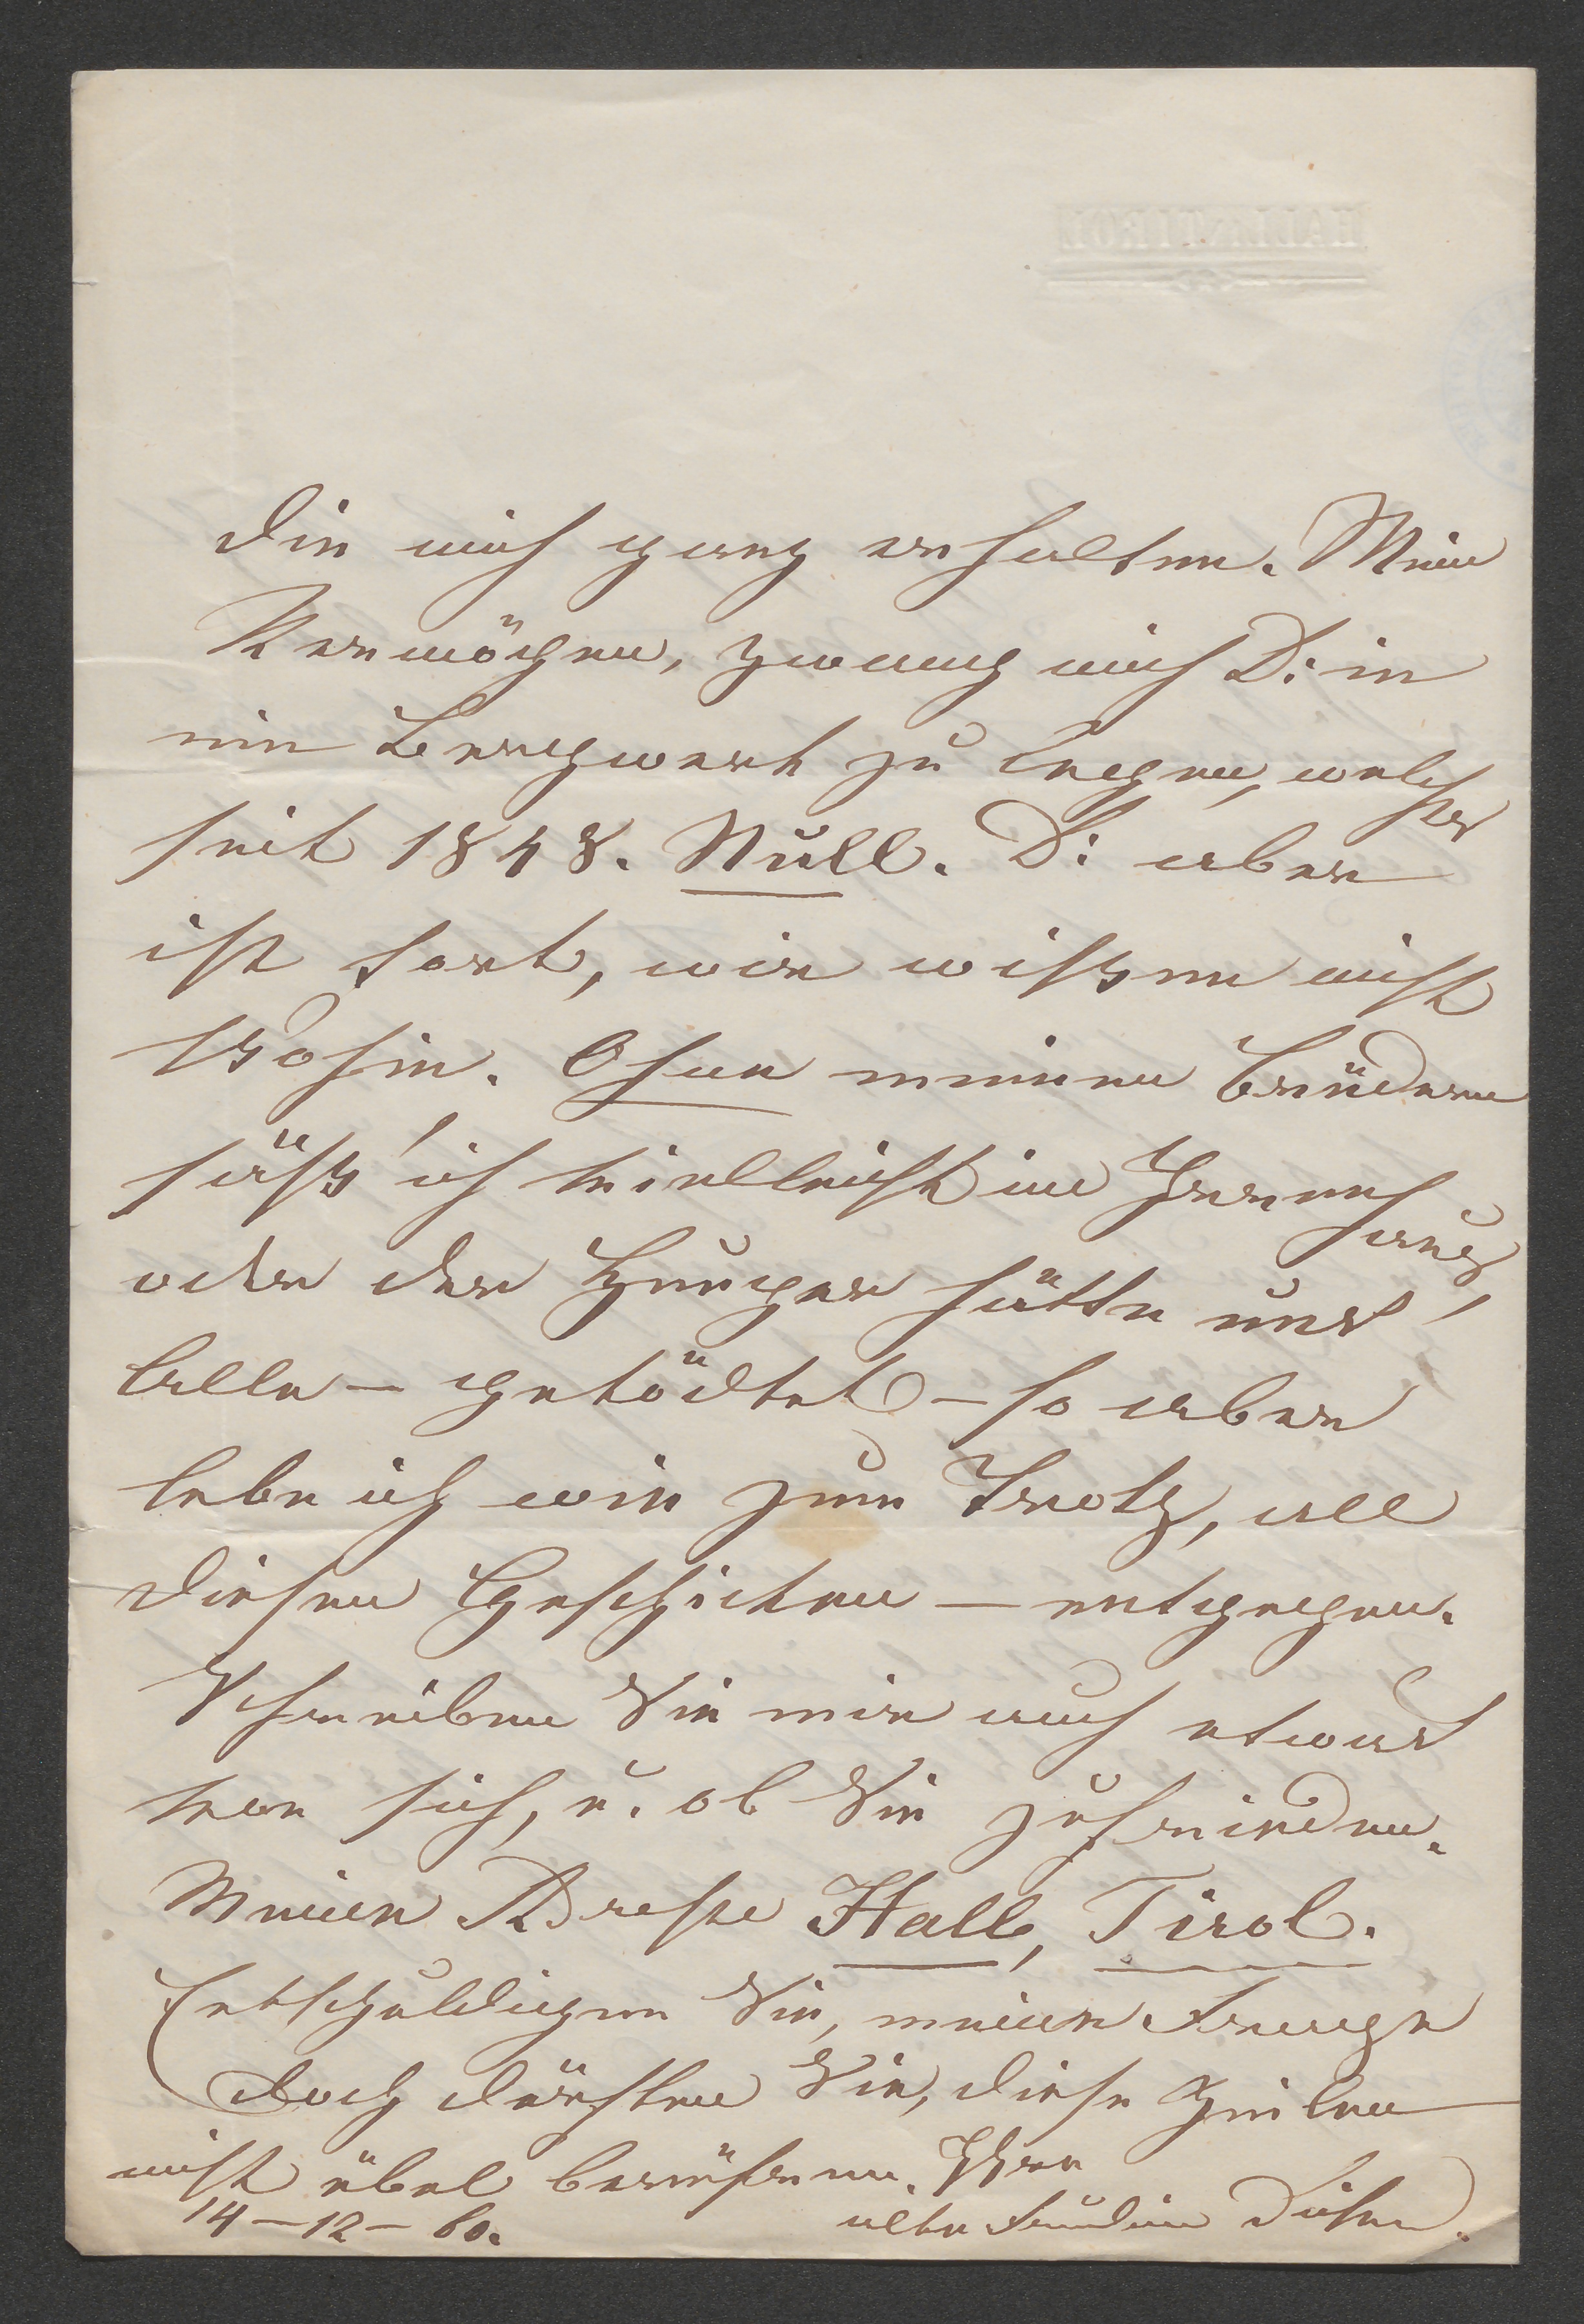 HALL IN TIROL
die mich ganz erhalten. Mein
Vermögen, zwang mich D: in
ein Bergwerk zu legen, welches
seit 1848. Null. D: aber
ist fort, wir wissen nicht
Wohin. Ohne meinen Brüdern
säß' ich vielleicht im Irrenhaus,
oder der Hunger hätte uns
Alle – getödtet – so aber
lebe ich wie zum Trotz, all
diesen Geschicken – entgegen.
Schreiben Sie mir auch etwas
von sich, u. ob Sie zufrieden.
Meine Adresse Hall, Tirol.
Entschuldigen Sie, meine Frage
doch dürften Sie, diese Zeilen
nicht übel berühren. Ihre
14–12–60. alte Freundin